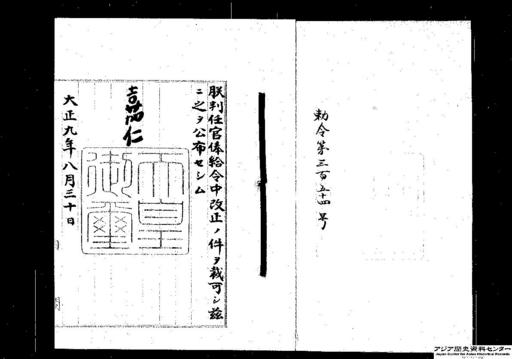 勅令第三百五十四号
朕判任官俸給令中改正ノ件ヲ裁可シ茲
ニ之ヲ公布セシム
嘉仁
天皇御璽
大正九年八月三十日
アジア歴史資料センター
Japan Center for Asian Historical Records